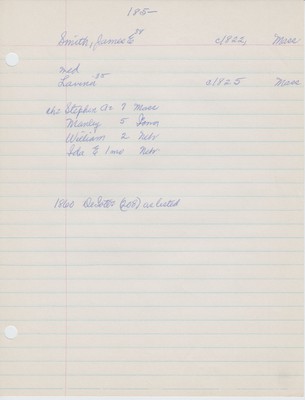 185-
Smith, James E 38 c/822, Mass
med
Lavina 35 c/825 Mass
chs Stephen A 7 Mass
Manley 5 Iowa
William 2 Nebr
Ida E 1 mo Nebr
1860 DeSoto (208) as listed